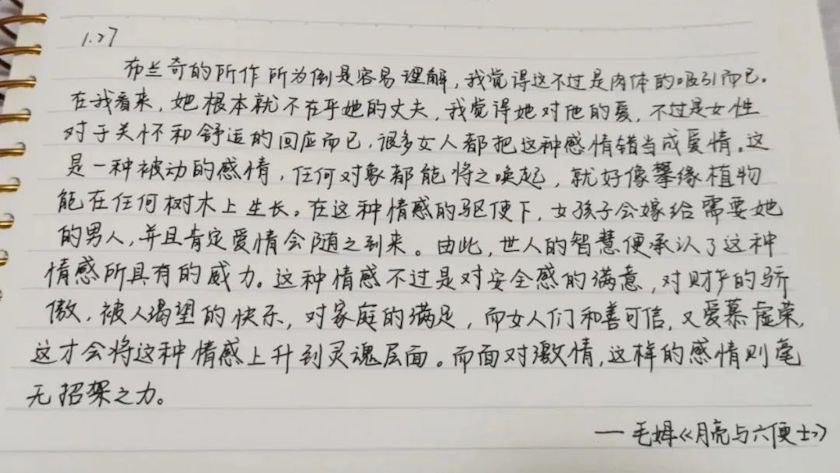 1.27
布兰奇的所作所为倒是容易理解,我觉得这不过是肉体的吸引而已。
在我看来,她根本就不在乎她的丈夫,我觉得她对他的爱,不过是女性
对于关怀和舒适的回应而已,很多女人都把这种感情错当成爱情。这
是一种被动的感情,任何对象都能将之唤起,就好像攀缘植物
能在任何树木上生长。在这种情感的驱使下,女孩子会嫁给需要她
的男人,并且肯定爱情会随之到来。由此,世人的智慧便承认了这种
情感所具有的威力。这种情感不过是对安全感的满意,对财产的骄
傲,被人渴望的快乐,对家庭的满足,而女人们和善可信,又爱慕虚荣,
这才会将这种情感上升到灵魂层面。而面对激情,这样的感情则毫
无招架之力。
——毛姆《月亮与六便士》